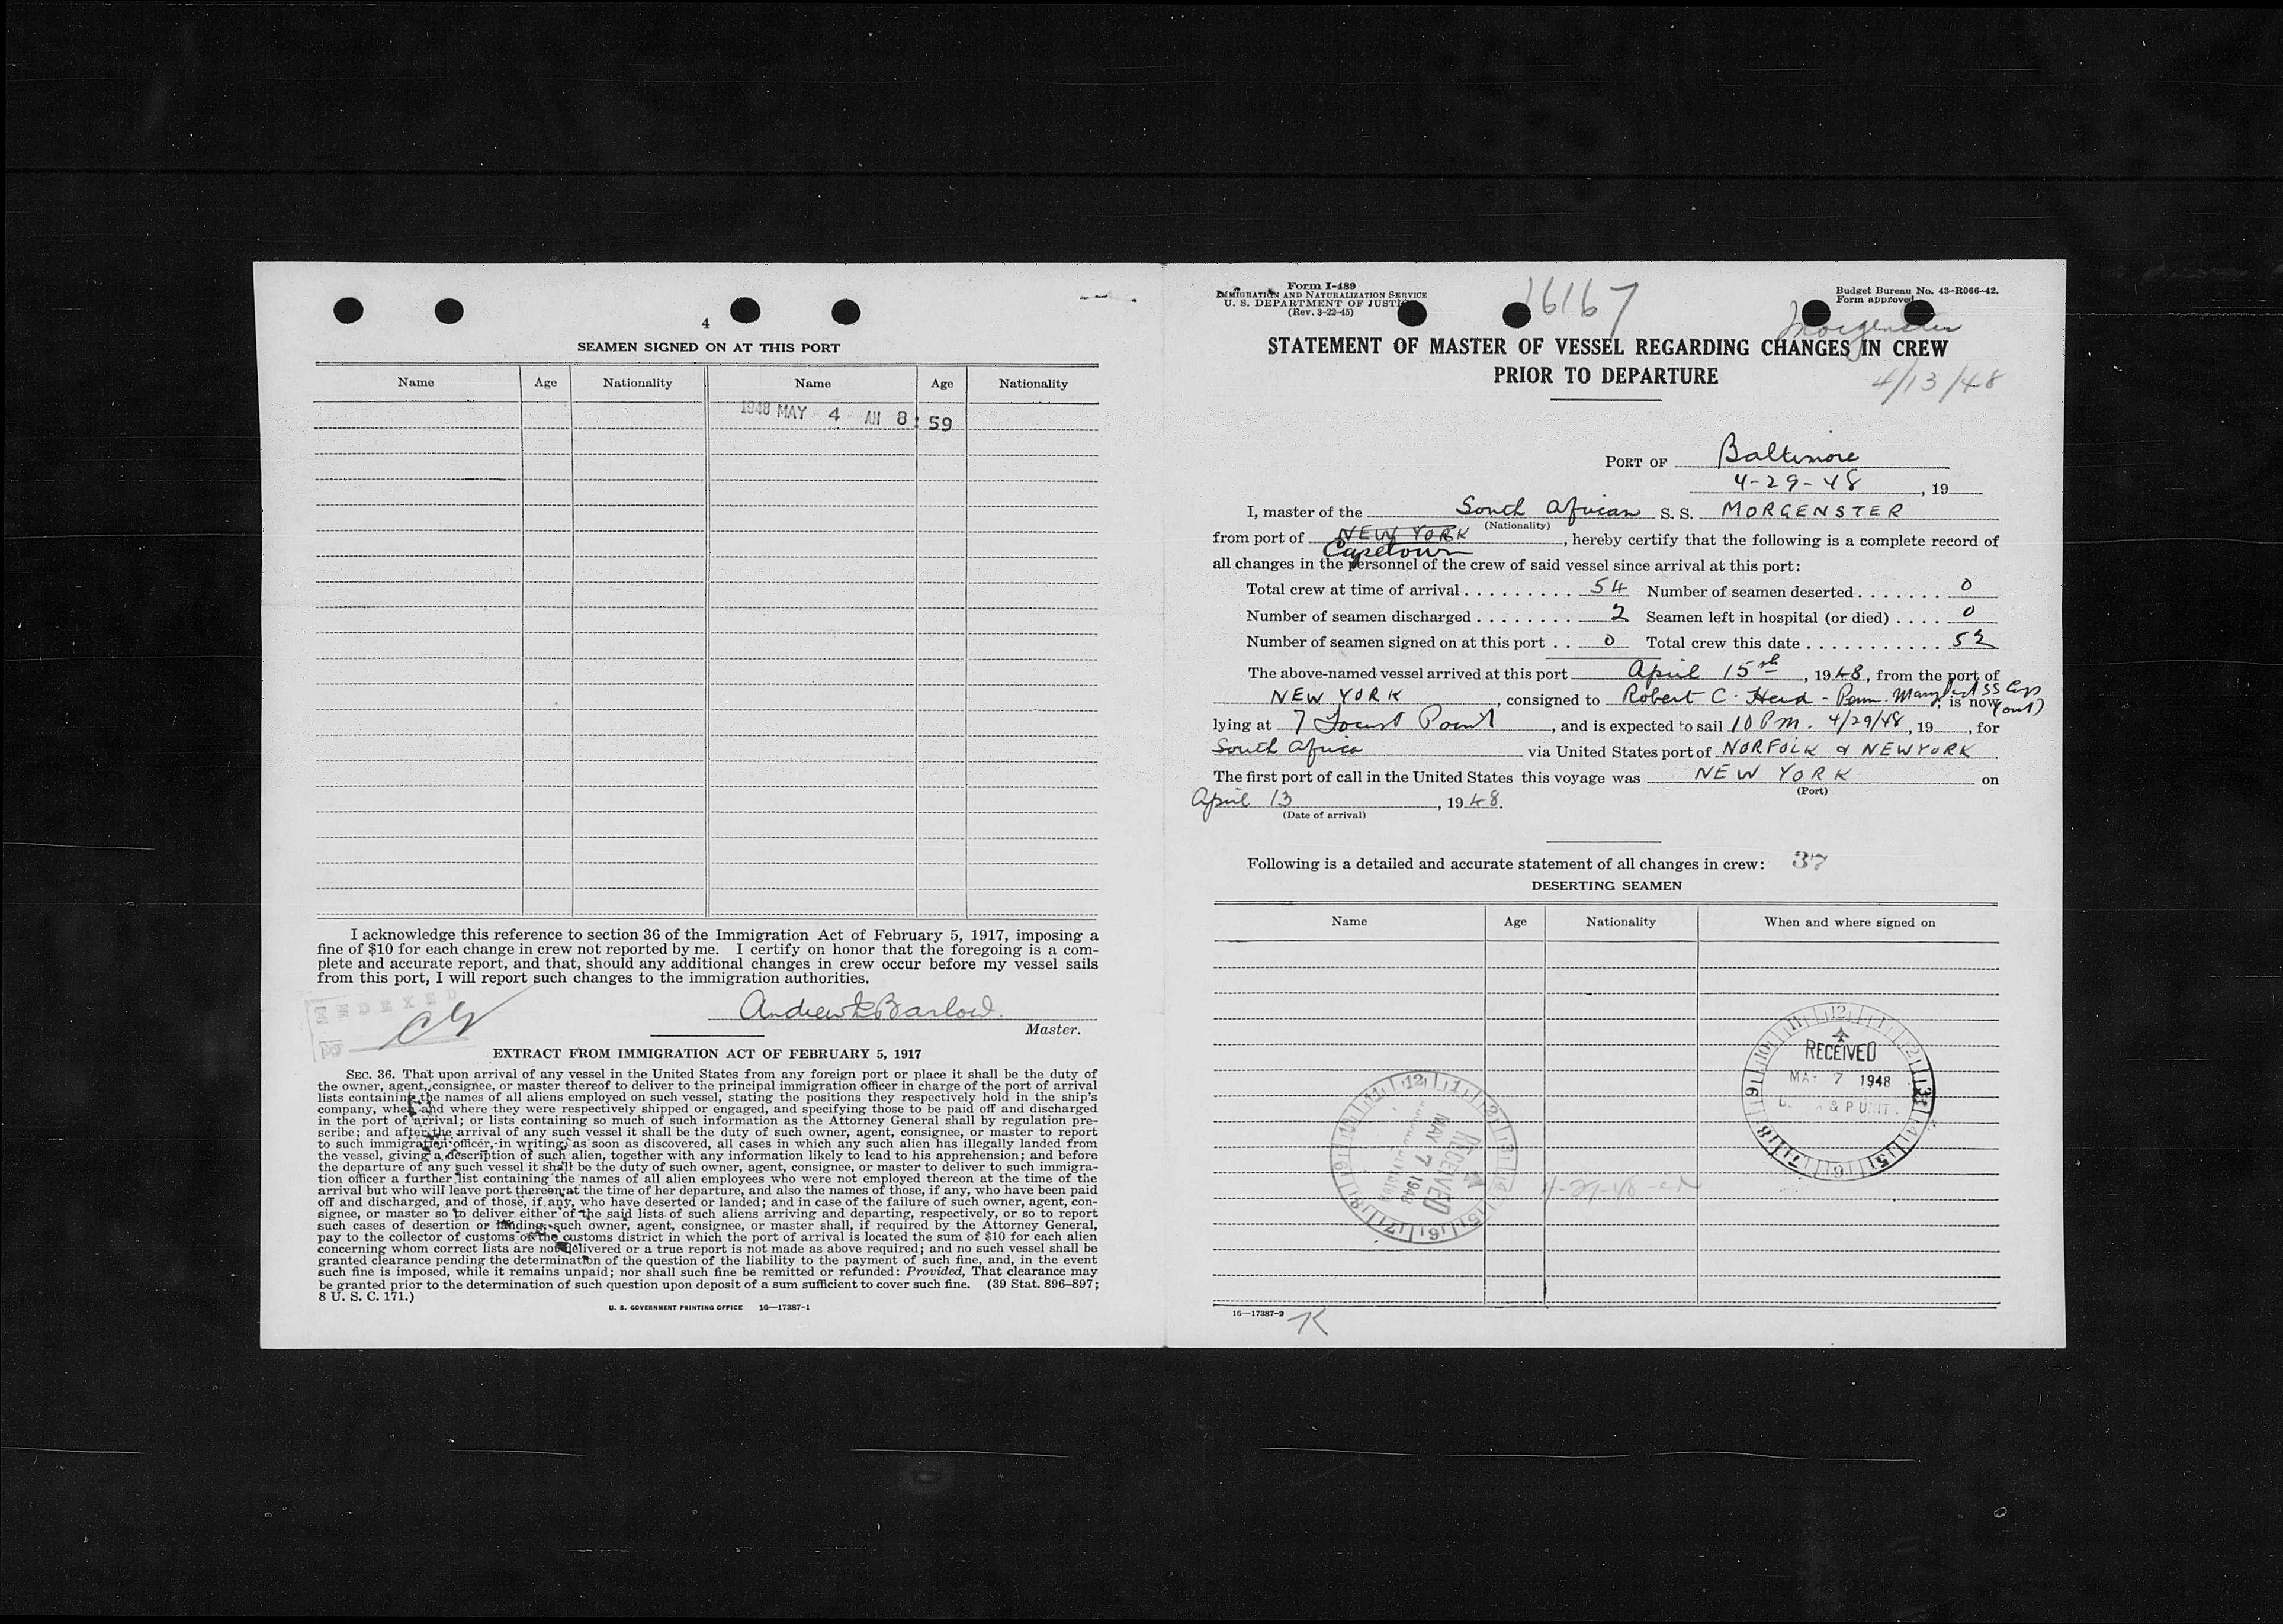 4
SEAMEN SIGNED ON AT THIS PORT
Name Age Nationality Name Age Nationality
1948 MAY 4 AM 8:59
I acknowledge this reference to section 36 of the Immigration Act of February 5, 1917, imposing a
fine of $10 for each change in crew not reported by me. I certify on honor that the foregoing is a com-
plete and accurate report, and that, should any additional changes in crew occur before my vessel sails
from this port, I will report such changes to the immigration authorities.
INDEXED
Andrew Barlow
Master.
EXTRACT FROM IMMIGRATION ACT OF FEBRUARY 5, 1917
SEC. 36. That upon arrival of any vessel in the United States from any foreign port or place it shall be the duty of
the owner, agent, consignee, or master thereof to deliver to the principal immigration officer in charge of the port of arrival
lists containing the names of all aliens employed on such vessel, stating the positions they respectively hold in the ship's
company, when and where they were respectively shipped or engaged, and specifying those to be paid off and discharged
in the port of arrival; or lists containing so much of such information as the Attorney General shall by regulation pre-
scribe; and after the arrival of any such vessel it shall be the duty of such owner, agent, consignee, or master to report
to such immigration officer, in writing, as soon as discovered, all cases in which any such alien has illegally landed from
the vessel, giving a description of such alien, together with any information likely to lead to his apprehension; and before
the departure of any such vessel it shall be the duty of such owner, agent, consignee, or master to deliver to such immigra-
tion officer a further list containing the names of all alien employees who were not employed thereon at the time of the
arrival but who will leave port thereon at the time of her departure, and also the names of those, if any, who have been paid
off and discharged, and of those, if any, who have deserted or landed; and in case of the failure of such owner, agent, con-
signee, or master so to deliver either of the said lists of such aliens arriving and departing, respectively, or so to report
such cases of desertion or landing, such owner, agent, consignee, or master shall, if required by the Attorney General,
pay to the collector of customs of the customs district in which the port of arrival is located the sum of $10 for each alien
concerning whom correct lists are not delivered or a true report is not made as above required; and no such vessel shall be
granted clearance pending the determination of the question of the liability to the payment of such fine, and, in the event
such fine is imposed, while it remains unpaid; nor shall such fine be remitted or refunded: Provided, That clearance may
be granted prior to the determination of such question upon deposit of a sum sufficient to cover such fine. (39 Stat. 896–897;
8 U. S. C. 171.)
U. S. GOVERNMENT PRINTING OFFICE 16—17387-1
Form I-489
IMMIGRATION AND NATURALIZATION SERVICE
U. S. DEPARTMENT OF JUSTICE
(Rev. 3-22-45)
16167
Budget Bureau No. 43-R066-42.
Form approved
Morgenster
STATEMENT OF MASTER OF VESSEL REGARDING CHANGES IN CREW
PRIOR TO DEPARTURE
4/13/48
PORT OF Baltimore
4-29-48, 19
I, master of the South African S. S. MORGENSTER
(Nationality)
from port of NEW YORK, hereby certify that the following is a complete record of
Capetown
all changes in the personnel of the crew of said vessel since arrival at this port:
Total crew at time of arrival 54 Number of seamen deserted 0
Number of seamen discharged 2 Seamen left in hospital (or died) 0
Number of seamen signed on at this port 0 Total crew this date 52
The above-named vessel arrived at this port April 15th, 1948, from the port of
NEW YORK, consigned to Robert C. Herd - Penn. Maryland SS Corp is now
lying at 7 Locust Point, and is expected to sail 10 PM. 4/29/48, 19, for
South Africa via United States port of NORFOLK & NEW YORK
The first port of call in the United States this voyage was NEW YORK on
(Port)
April 13, 1948.
(Date of arrival)
Following is a detailed and accurate statement of all changes in crew: 37
DESERTING SEAMEN
Name Age Nationality When and where signed on
RECEIVED
MAY 7 1948
& P UNIT
RECEIVED
MAY 7 1948
16—17387-2
K